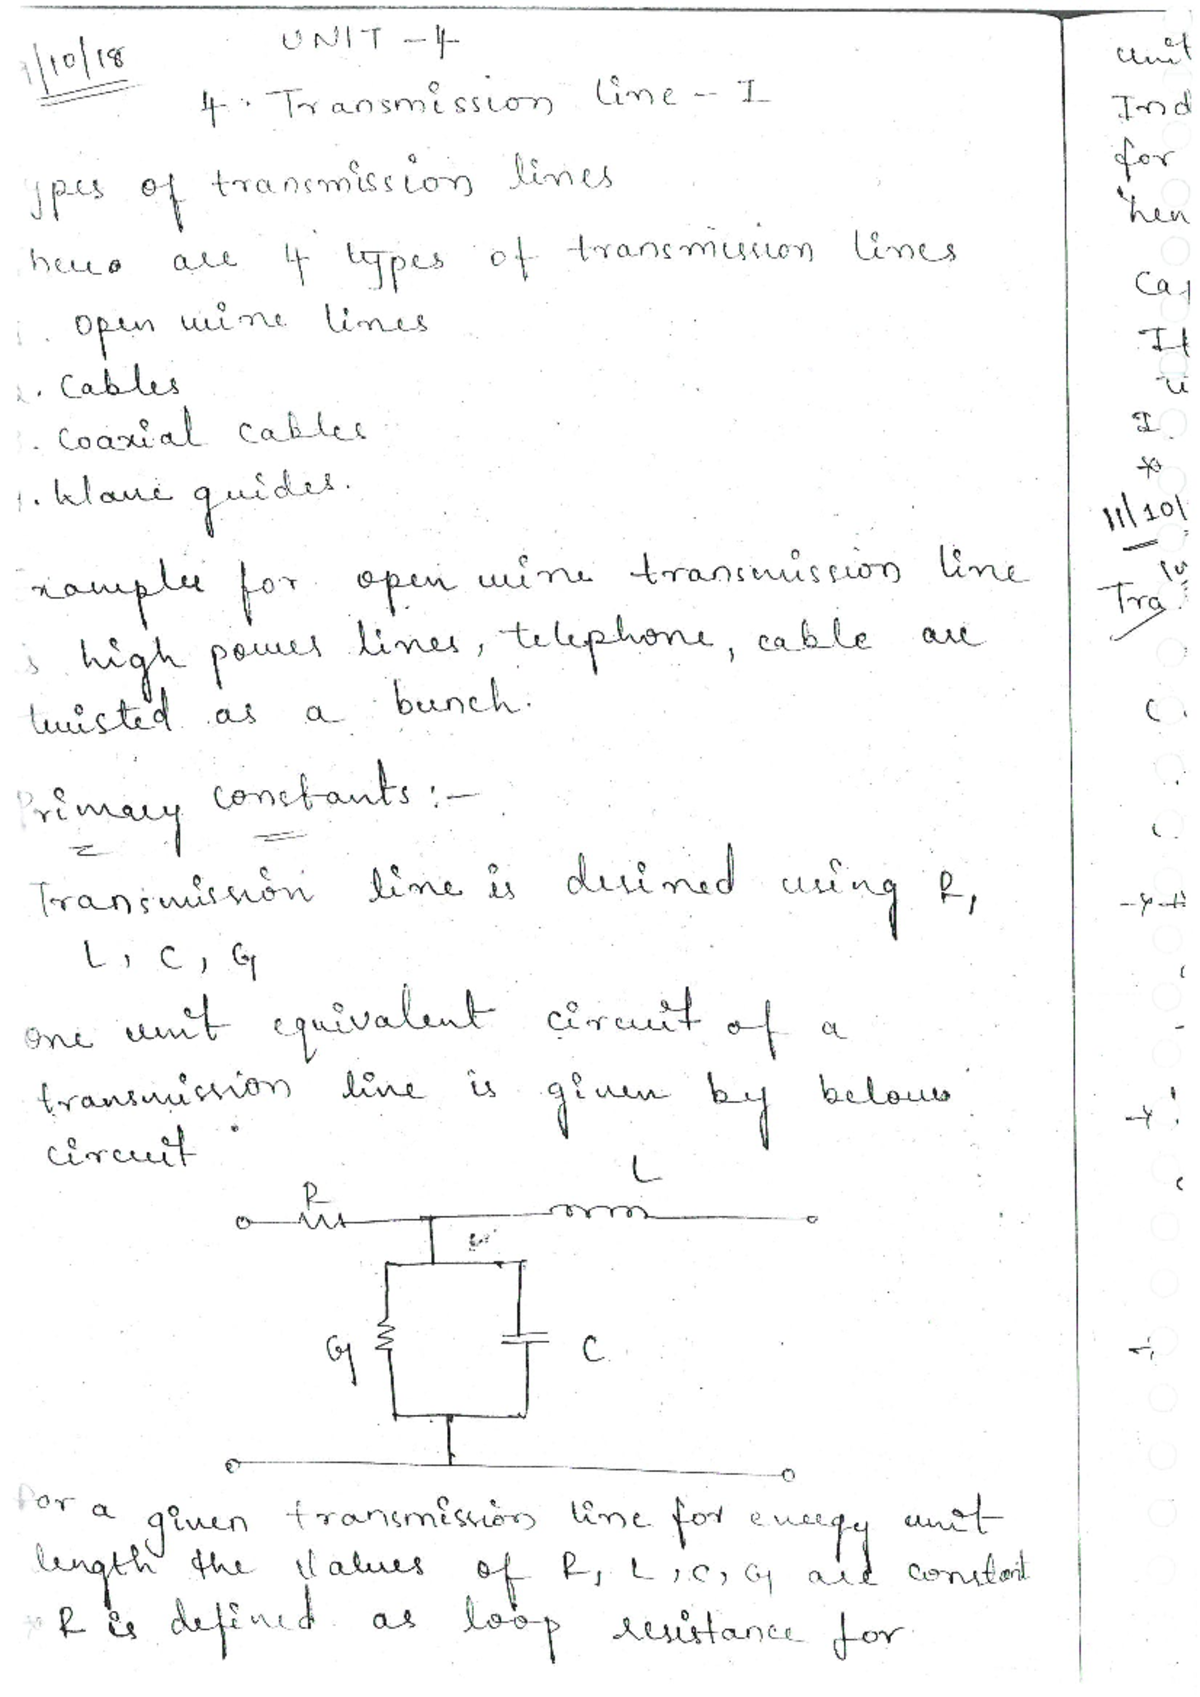 /10/18
UNIT - 4
4. Transmission line - I
ypes of transmission lines
here are 4 types of transmission lines
. open wine lines
. Cables
. Coaxial cables
. Wave guides.
xample for open wine transmission line
s high power lines, telephone, cable are
twisted as a bunch.
Primary constants :-
Transmission line is desined using R,
L, C, G
one unit equivalent circuit of a
transmission line is given by below
circuit
R
L
G
C
For a given transmission line for energy unit
length the values of R, L, C, G are constant
* R is defined as loop resistance for
unit
Ind
for
hen
Ca
It
I
*
11/10/
Tra